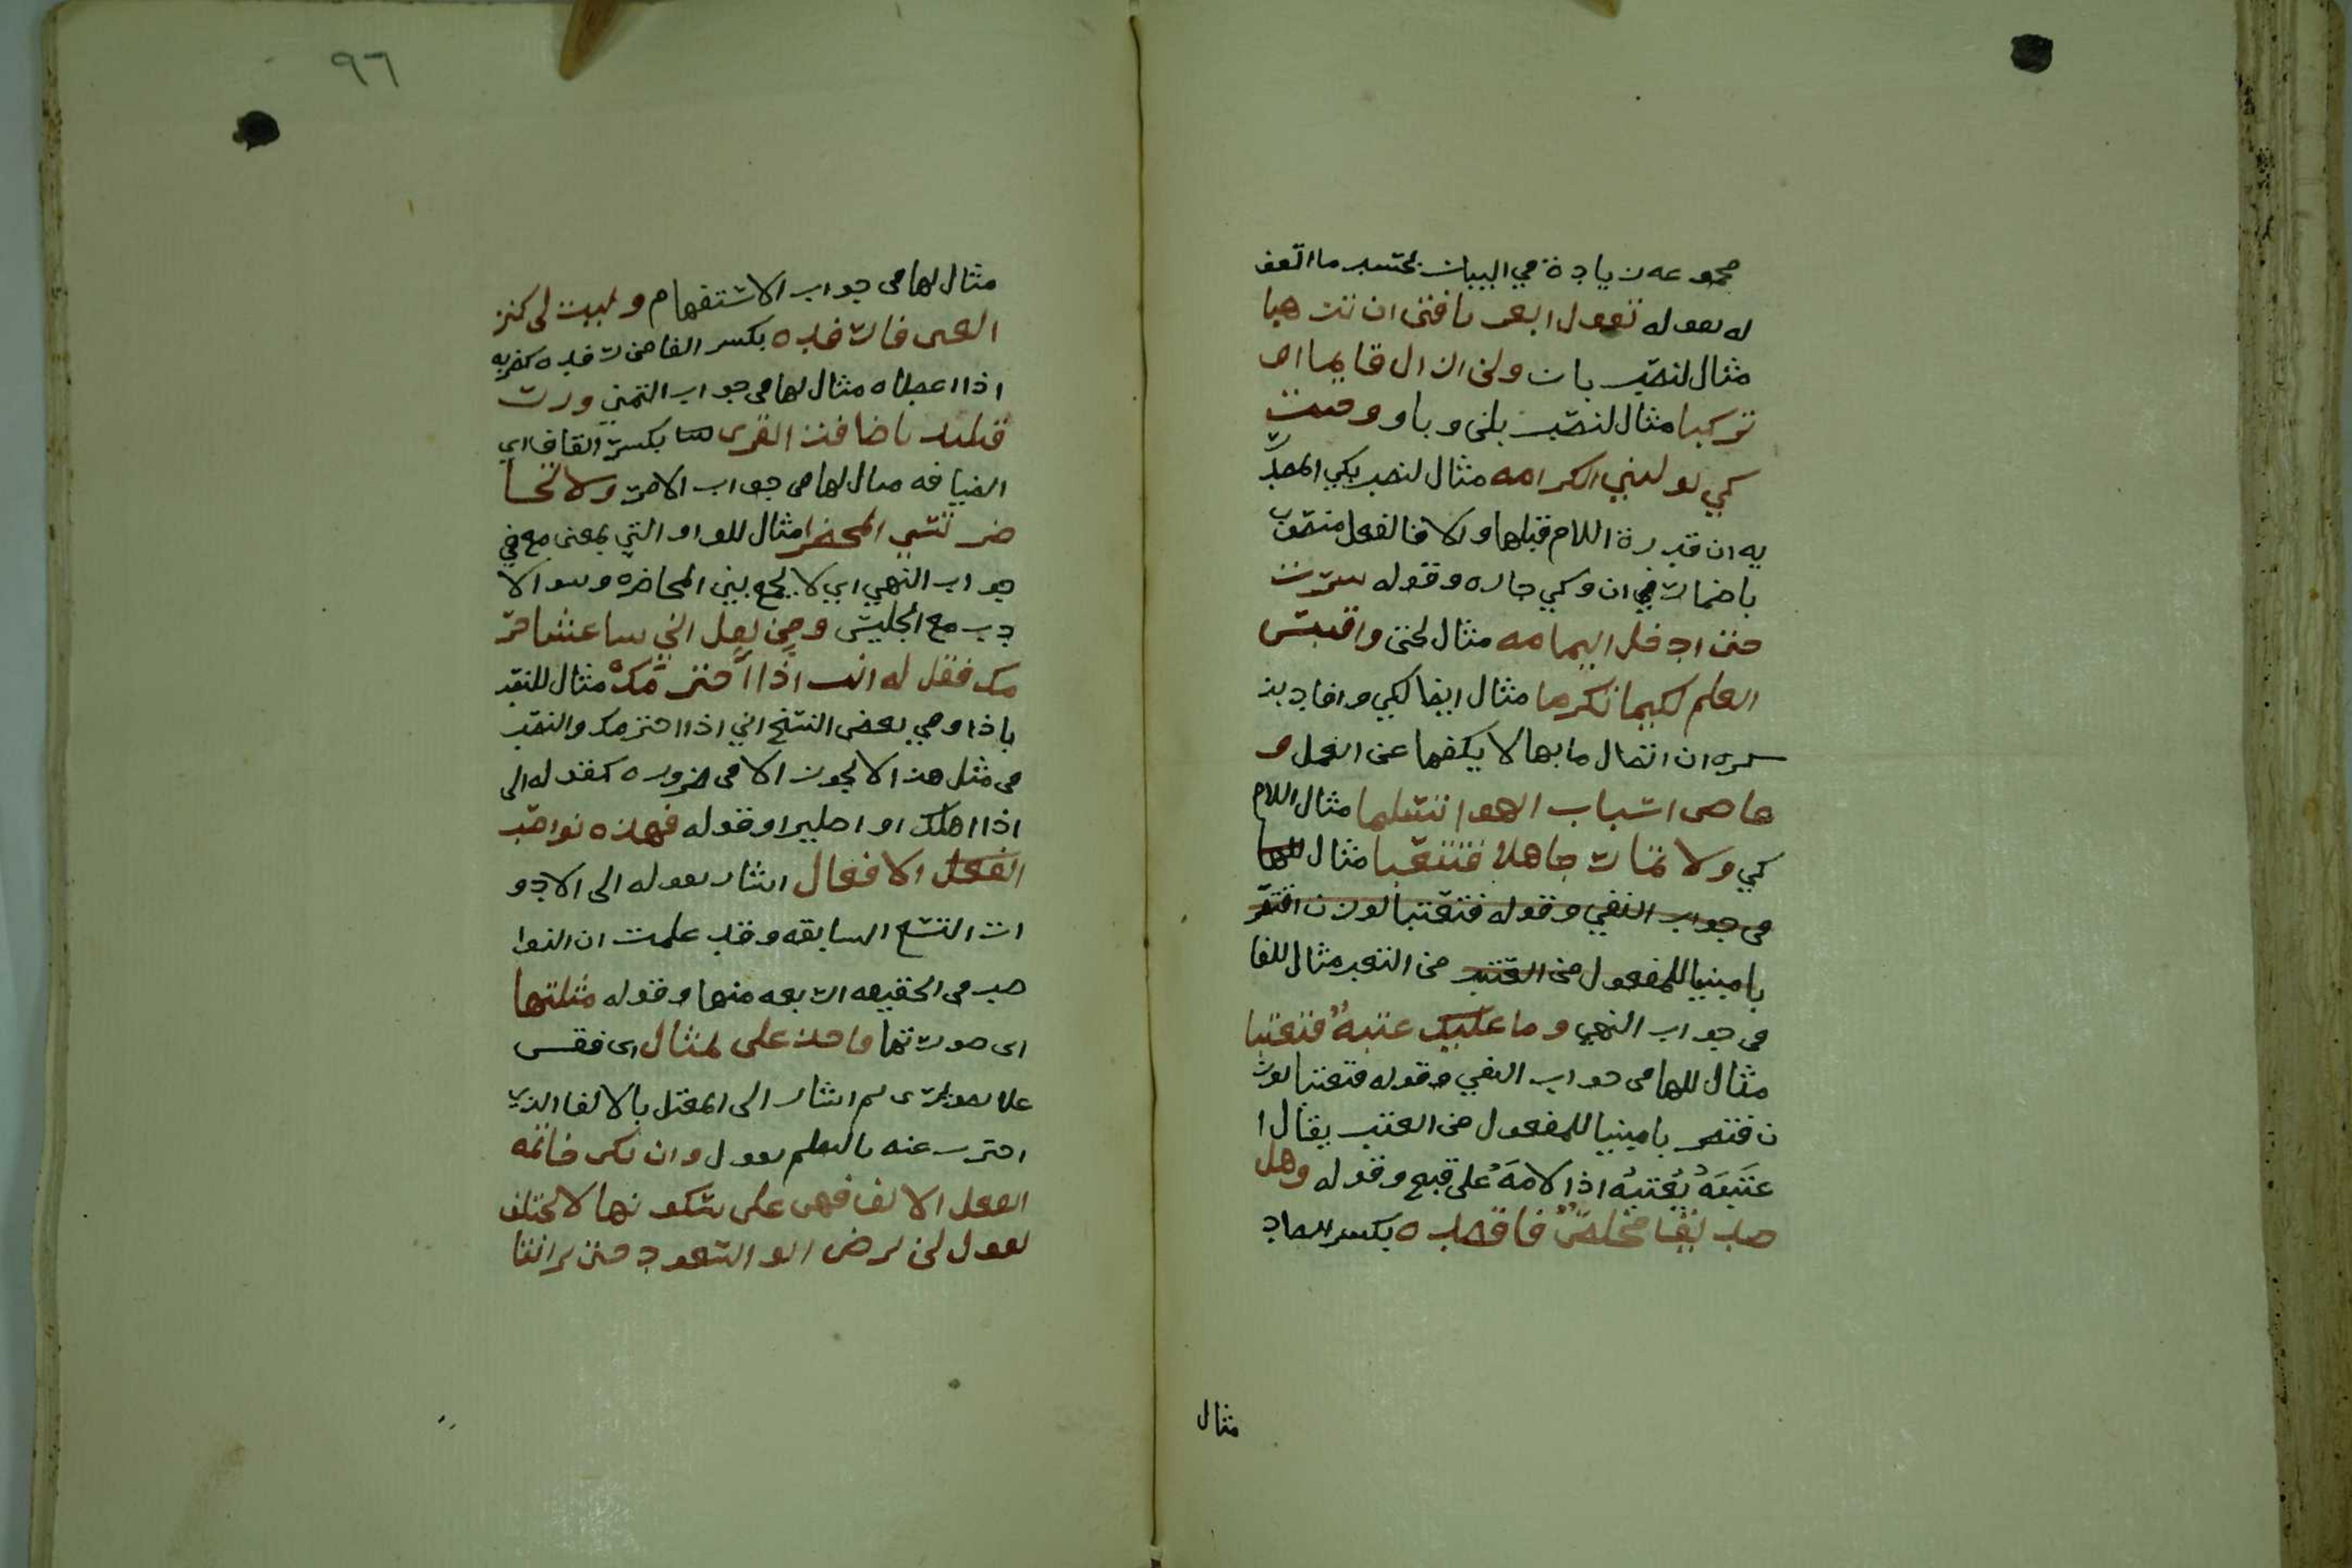 مجموعه زيادة في البيان بحسب ما اتفق
له بقوله تقول ابغى يا فتى ان تذهبا
مثال لنصب بان ولن ازال قايما او
تركبا مثال لنصب بلن وباو وجيت
كي توليني الكرامه مثال لنصب بكي المصدر
يه ان قدرة اللام قبلها والا فالفعل منصوب
باضمار ان وكي جاره وقوله سرت
حتى ادخل اليمامه مثال لحتى واقتبس
العلم لكيما تكرما مثال ايضا لكي وافاد بذ
كره ان اتصال ما بها لا يكفها عن العمل و
عاص اسباب الهوا لتسلما مثال اللام
كي ولا تمار جاهلا فتتعبا مثال للفا
في جواب النفي وقوله فتعتبا بوزن افتقر
با مبنيا للمفعول من العتب من التعب مثال للفا
في جواب النهي وما عليك عتبه فتعتبا
مثال للها في جواب النفي وقوله فتعتبا بوز
ن فتضر با مبنيا للمفعول من العتب يقال ا
عتبه يعتبه اذا لامه على قبح وقوله وهل
صديق مخلص فاقصده بكسر الصاد
مثال
٩٦
مثال لها في جواب الاستفهام وليت لي كنز
الغنى فارفده بكسر الفا من رفده كضربه
اذا اعطاه مثال لها في جواب التمني وزر
فتلتذ باصناف القرى بكسر القاف اي
الضيافه مثال لها في جواب الامر ولا تحا
ضر وتسي المحضرا مثال للواو التي بمعنى مع في
جواب النهي اي لا يجمع بين المحاضره وسوالا
دب مع الجليس ومن يقل اني ساغشا حر
مك فقل له انت اذا احترمك مثال للنصب
باذا وفي بعض النسخ اني اذا احترمك والنصب
في مثل هذا لا يجوز الا في ضروره كقوله اني
اذا اهلك او اطيرا وقوله فهذه نواصب
الفعل الافعال اشار بقوله الى الادو
ات التسع السابقه وقد علمت ان النوا
صب في الحقيقه اربعه منها وقوله مثلتها
اى صورتها فاحذ على تمثال اى فقس
على تصويرى ثم اشار الى المعتل بالالف الذي
احترز عنه بالسلم بقول وان تكن خاتمه
الفعل الالف فهي على سكونها لا تختلف
تقول لن يرضى ابو السعود حتى يرا نتا